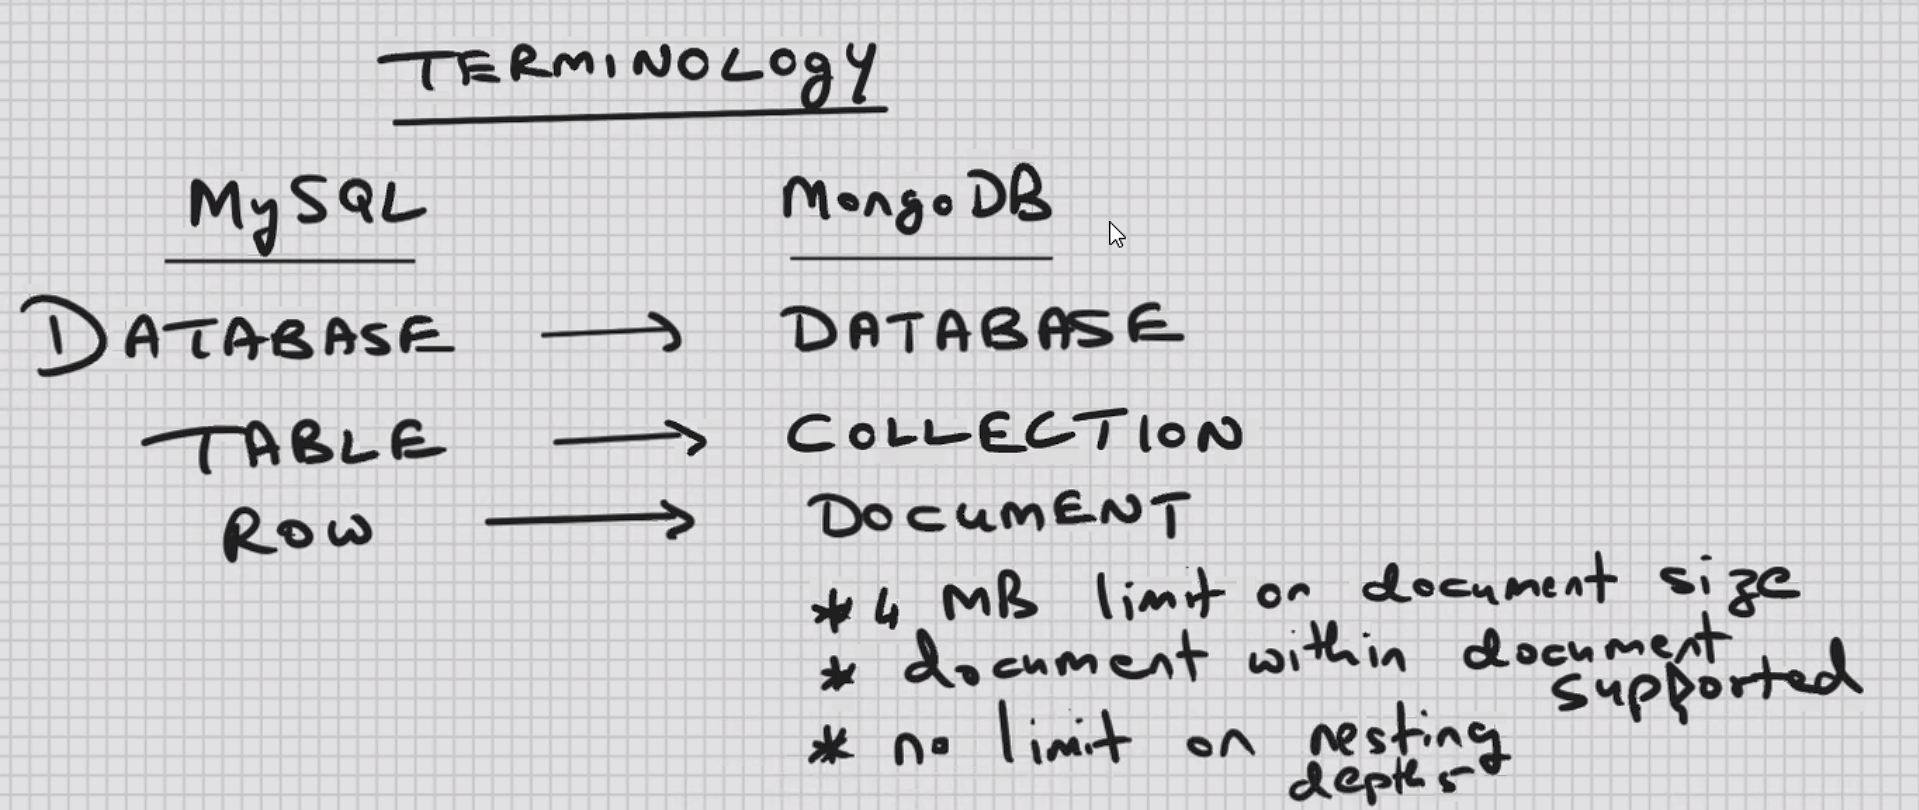 TERMINOLOgY
MySQL MongoDB
DATABASE → DATABASE
TABLE → COLLECTION
ROW → DOCUMENT
* 4 MB limit on document size
* document within document
supported
* no limit on nesting
depths